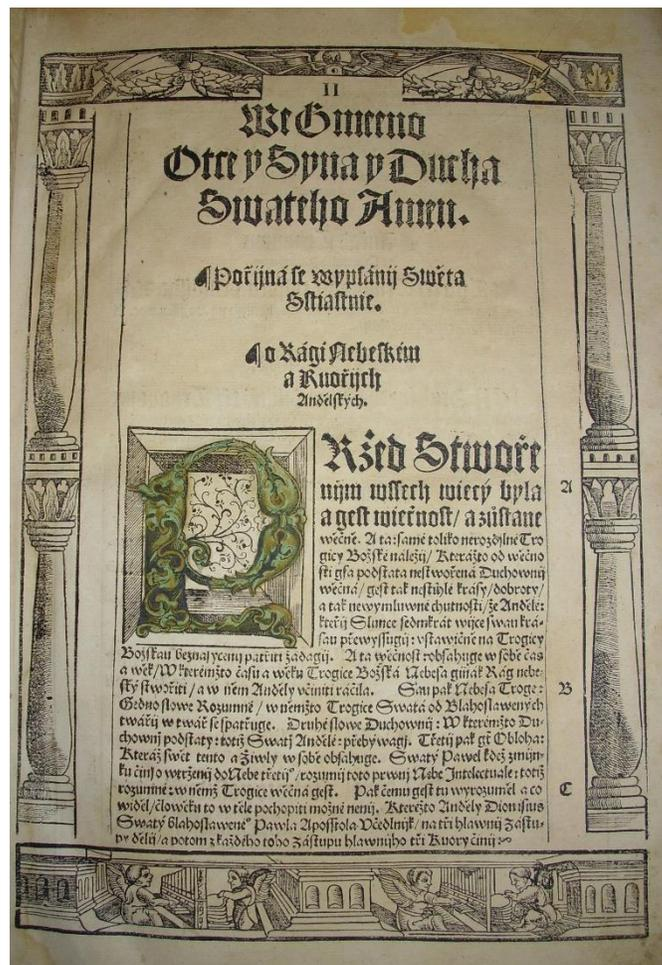 II
We Gmeno
Otce y Syna y Ducha
Swateho Amen.
¶ Počijná se wypsánij Swěta
Sstiastnie.
¶ o Rági Nebeském
a Kuořijch
Andělských.
PRžed Stwoře
nijm wssech wiecý byla
a gest wiečnost/ a zůstane
wěčně. A ta: samé toliko nerozdjlné Tro
gicy Božské náležij/ Kterážto od wěčno
sti gsa podstata nestwořená Duchownij
wěčná/ gest tak nestihlé krásy/dobroty/
a tak newymluwné chutnosti/že Andělé:
kteřij Slunce sedmkrát wijce swau krá-
sau přewyssugij: vstawičně na Trogicy
Božskau beznasycenij patřiti žádagij. A ta wěčnost: obsahuge w sobě čas
a wěk/ W kterémžto času a wěku Trogice Božská Nebesa ginák Rág nebe-
ský stwořiti / a w něm Anděly včiniti ráčila. Sau pak Nebesa Troge:
Gedno slowe Rozumné / w němžto Trogice Swatá od Blahoslawených
twářij w twář se spatřuge. Druhé slowe Duchownij: W kterémžto Du-
chownij podstaty: totiž Swatj Andělé: přebýwagj. Třetij pak gt Obloha:
Kteráž swět tento a Žiwly w sobě obsahuge. Swatý Pawel když zmijn-
ku činj o wtrženij do Nebe třetijº/ rozumij toto prwnij Nebe Intelectuale: totiž
rozumné: w němž Trogice wěčná gest. Pak čemu gest tu wyrozuměl a co
widěl/ člowěku to w těle pochopiti možné nenij. Kteréžto Anděly Dionisius
Swatý blahoslaweneº Pawla Aposstola Včedlnijk/ na tři hlawnij Zástu-
py dělij/ a potom z každého toho Zástupu hlawnijho tři Kuory činij:
A
B
C